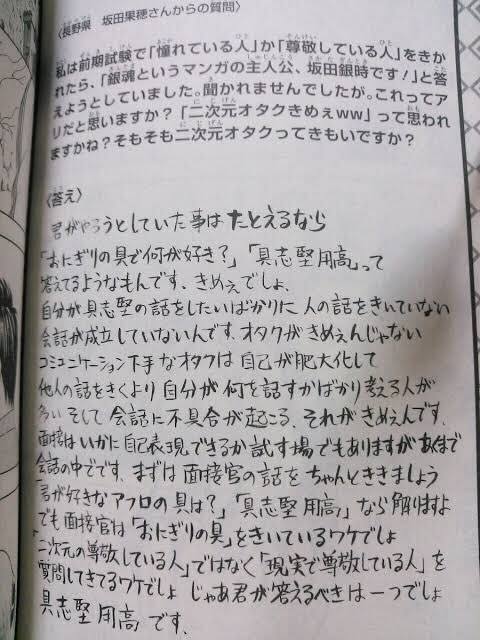 〈長野県　坂田果穂さんからの質問〉
私は前期試験で「憧れている人」か「尊敬している人」をきか
れたら、「銀魂というマンガの主人公、坂田銀時です！」と答
えようとしていました。聞かれませんでしたが。これってア
リだと思いますか？「二次元オタクきめぇww」って思われ
ますかね？そもそも二次元オタクってきもいですか？
〈答え〉
君がやろうとしていた事は たとえるなら
「おにぎりの具で何が好き？」「具志堅用高」って
答えてるようなもんです、きめぇでしょ、
自分が具志堅の話をしたいばかりに 人の話をきいていない
会話が成立していないんです、オタクがきめぇんじゃない
コミュニケーション下手なオタクは 自己が肥大化して
他人の話をきくより 自分が 何を話すかばかり考える人が
多い そして 会話に不具合が起こる、それが きめぇんです、
面接はいかに自己表現できるか試す場でもありますがあくまで
会話の中でです、まずは 面接官の話を ちゃんとききましょう
君が好きな アフロの具は？」「具志堅用高」なら解りますよ
でも面接官は「おにぎりの具」をきいているワケでしょ
「二次元の尊敬している人」ではなく「現実で尊敬している人」を
質問してきてるワケでしょ じゃあ君が答えるべきは一つでしょ
具志堅用高 です、